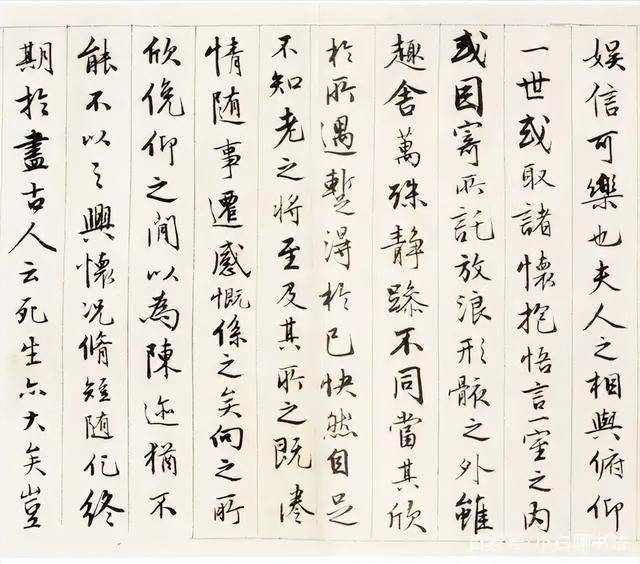 娱信可樂也夫人之相與俯仰
一世或取諸懷抱悟言一室之内
或因寄所託放浪形骸之外雖
趣舍萬殊静躁不同當其欣
於所遇暫得於己快然自足
不知老之将至及其所之既惓
情随事遷感慨係之矣向之所
欣俛仰之間以為陳迹猶不
能不以之興懷况脩短随化終
期於盡古人云死生亦大矣豈